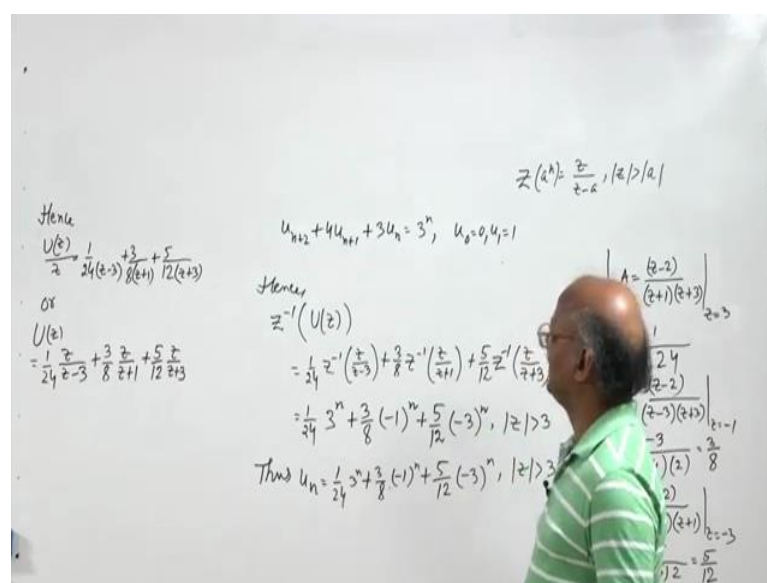 Z(aⁿ) = z/(z-a), |z|>|a|
Hence
U(z)/z = 1/24(z-3) + 3/8(z+1) + 5/12(z+3)
or
U(z)
= 1/24 z/(z-3) + 3/8 z/(z+1) + 5/12 z/(z+3)
uₙ₊₂ + 4uₙ₊₁ + 3uₙ = 3ⁿ, u₀=0, u₁=1
Hence,
Z⁻¹(U(z))
= 1/24 Z⁻¹(z/(z-3)) + 3/8 Z⁻¹(z/(z+1)) + 5/12 Z⁻¹(z/(z+3)
= 1/24 3ⁿ + 3/8 (-1)ⁿ + 5/12 (-3)ⁿ, |z|>3
Thus uₙ = 1/24 3ⁿ + 3/8 (-1)ⁿ + 5/12 (-3)ⁿ, |z|>3
A = (z-2)/(z+1)(z+3) | z=3
1/24
(z-2)/(z-3)(z+3) | z=-1
-3/)(2) = 3/8
2)/)(z+1) | z=-3
12 = 5/12